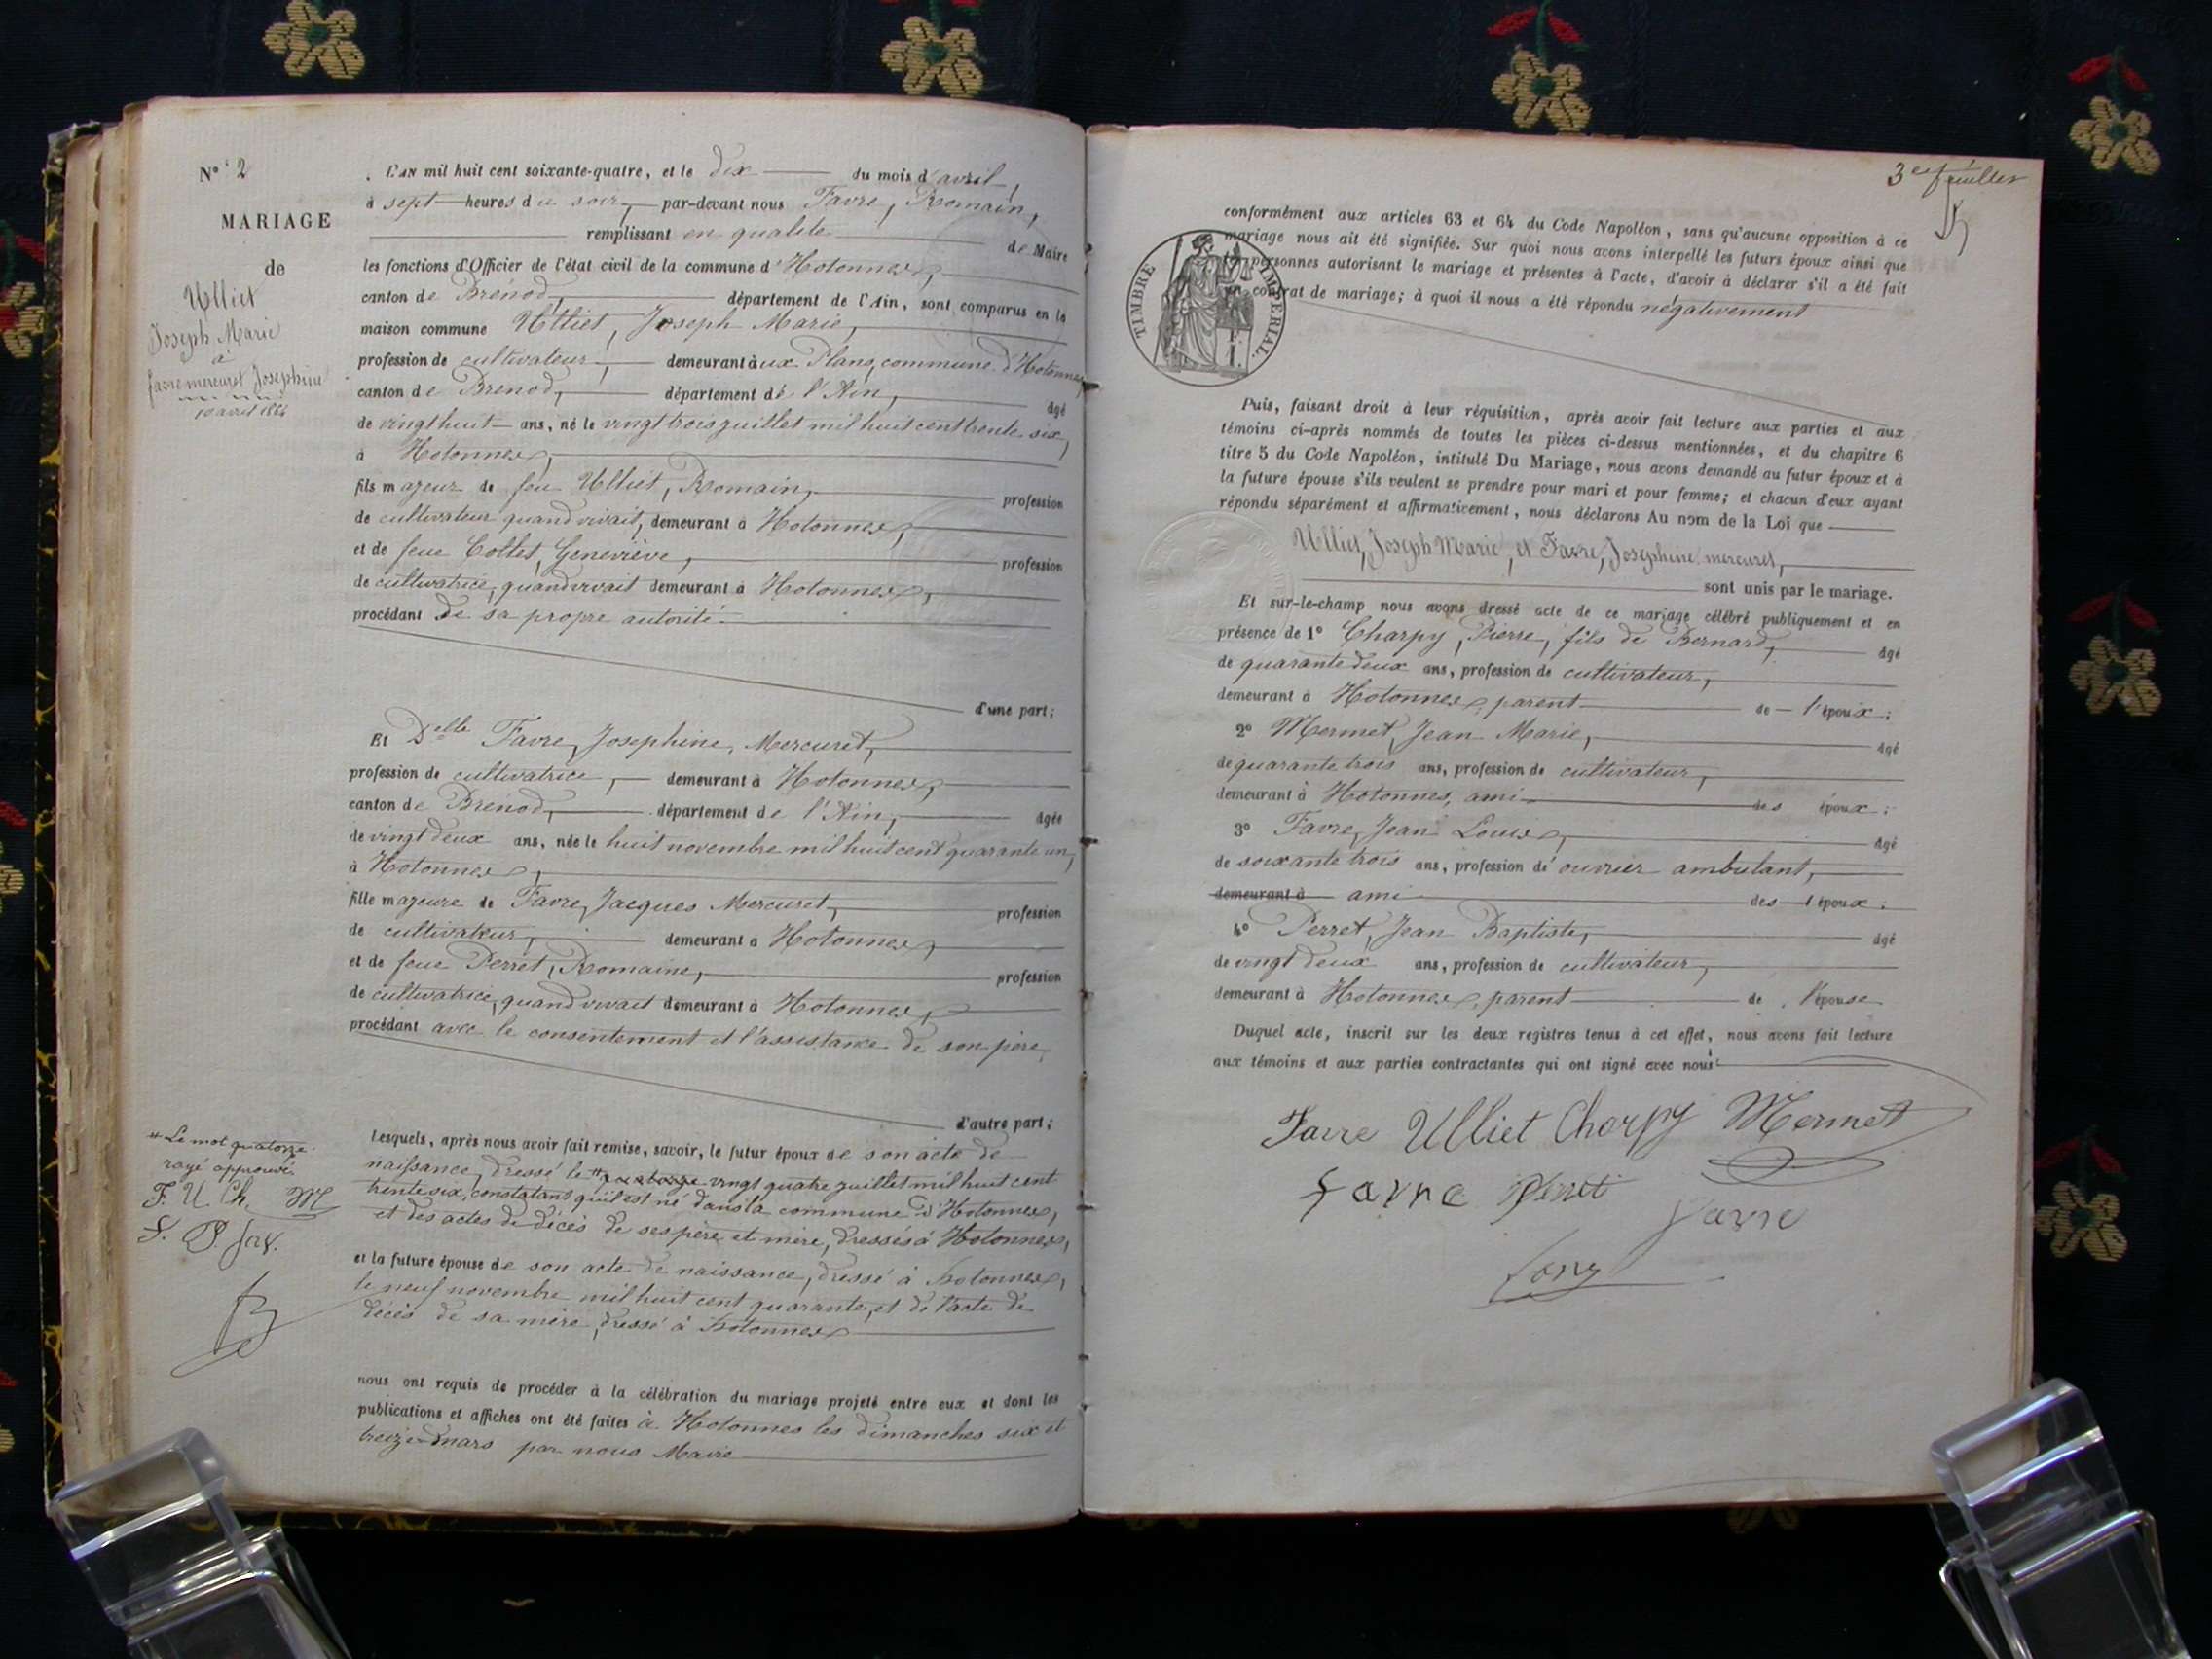 N° 2
MARIAGE
de
Ulliet
Joseph Marie
à
favre mercuret Josephine
10 avril 1864
L'AN mil huit cent soixante-quatre, et le dix du mois d'avril,
à sept heures du soir, par-devant nous Favre, Romain,
remplissant en qualité de Maire
les fonctions d'Officier de l'état civil de la commune d'Hotonnes,
canton de Brénod, département de l'Ain, sont comparus en la
maison commune Ulliet, Joseph Marie,
profession de cultivateur, demeurant aux Plans, commune d'Hotonnes,
canton de Brénod, département de l'Ain, âgé
de vingt huit ans, né le vingt trois juillet mil huit cent trente six,
à Hotonnes,
fils majeur de feu Ulliet, Romain, profession
de cultivateur quand vivait, demeurant à Hotonnes,
et de feue Collet, Geneviève, profession
de cultivatrice, quand vivait demeurant à Hotonnes,
procédant de sa propre autorité.
d'une part;
Et Delle Favre, Josephine, Mercuret,
profession de cultivatrice, demeurant à Hotonnes,
canton de Brénod, département de l'Ain, âgée
de vingt deux ans, née le huit novembre mil huit cent quarante un,
à Hotonnes,
fille majeure de Favre, Jacques Mercuret, profession
de cultivateur, demeurant à Hotonnes,
et de feue Perret, Romaine, profession
de cultivatrice, quand vivait demeurant à Hotonnes,
procédant avec le consentement et l'assistance de son père,
d'autre part;
# Le mot quatorze
rayé approuvé.
F. U. Ch. M
F. P. fav.
Lesquels, après nous avoir fait remise, savoir, le futur époux de son acte de
naissance, dressé le # quatorze vingt quatre juillet mil huit cent
trente six, constatant qu'il est né dans la commune d'Hotonnes,
et des actes de décès de ses père et mère, dressés à Hotonnes,
et la future épouse de son acte de naissance, dressé à Hotonnes,
le neuf novembre mil huit cent quarante, et de l'acte de
décès de sa mère, dressé à Hotonnes
nous ont requis de procéder à la célébration du mariage projeté entre eux et dont les
publications et affiches ont été faites à Hotonnes les dimanches six et
treize mars par nous Maire
3e feuillet
conformément aux articles 63 et 64 du Code Napoléon, sans qu'aucune opposition à ce
mariage nous ait été signifiée. Sur quoi nous avons interpellé les futurs époux ainsi que
personnes autorisant le mariage et présentes à l'acte, d'avoir à déclarer s'il a été fait
un contrat de mariage; à quoi il nous a été répondu négativement
TIMBRE IMPÉRIAL.
Puis, faisant droit à leur réquisition, après avoir fait lecture aux parties et aux
témoins ci-après nommés de toutes les pièces ci-dessus mentionnées, et du chapitre 6
titre 5 du Code Napoléon, intitulé Du Mariage, nous avons demandé au futur époux et à
la future épouse s'ils veulent se prendre pour mari et pour femme; et chacun d'eux ayant
répondu séparément et affirmativement, nous déclarons Au nom de la Loi que
Ulliet, Joseph Marie, et Favre, Josephine mercuret,
sont unis par le mariage.
Et sur-le-champ nous avons dressé acte de ce mariage célébré publiquement et en
présence de 1° Charpy, Pierre, fils de Bernard, âgé
de quarante deux ans, profession de cultivateur,
demeurant à Hotonnes, parent de l'époux;
2° Mermet, Jean Marie, âgé
de quarante trois ans, profession de cultivateur,
demeurant à Hotonnes, ami des époux;
3° Favre, Jean Louis, âgé
de soixante trois ans, profession d'ouvrier ambulant,
demeurant à ami des époux;
4° Perret, Jean Baptiste, âgé
de vingt deux ans, profession de cultivateur,
demeurant à Hotonnes, parent de l'épouse
Duquel acte, inscrit sur les deux registres tenus à cet effet, nous avons fait lecture
aux témoins et aux parties contractantes qui ont signé avec nous
Favre Ulliet Charpy Mermet
Favre Perret
favre